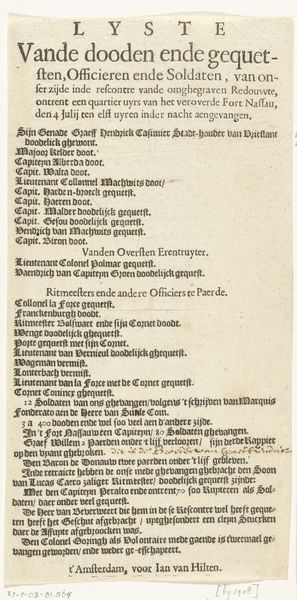 LYSTE
Vande dooden ende gequet-
sten, Officieren ende Soldaten, van on-
ser zijde inde rescontre vande omghegraven Redouvte,
ontrent een quartier uyrs van het veroverde Fort Nassau,
den 4 Julij ten elff uyren inder nacht aengevangen.
Sijn Genade Graeff Hendrick Casimier Stadt-houder van Vrieslant
doodelijck ghewont.
Majoor Kelder doot.
Capiteyn Alberda doot.
Capit. Walta doot.
Lieutenant Collonnel Machwits doot/
Capit. Harden-broeck gequetst.
Capit. Haeren doot.
Capit. Malder doodelijck gequetst.
Capit. Gesou doodelijck gequetst.
Vendrich van Machwits gequetst.
Capit. Biron doot.
Vanden Oversten Erentruyter.
Lieutenant Colonel Polmar gequetst.
Vaendrich van Capiteyn Groen doodelijck gequetst.
Ritmeesters ende andere Officiers te Paerde.
Collonel la Force gequetst.
Franckenburgh doodt.
Ritmeester Bolswart ende sijn Cornet doodt.
Wenge doodelijck ghequetst.
Porte gequetst met sijn Cornet.
Lieutenant van Vernieul doodelijck ghequetst.
Wageman vermist.
Lonterbach vermist.
Lieutenant van la Force met de Cornet gequetst.
Cornet Coninck ghequetst.
12 Soldaten van ons ghevangen/ volgens 't schrijven van Marquis
Fonderato aen de Heere van Com.
3 a 400 dooden ende wel soo veel aen d'andere zijde.
In't Fort Nassau een Capiteyn/ 80 Soldaten ghevangen.
Graef Willem 2 Paerden onder 't lijf verlooren/ sijn derde Rappier
op den vyant ghebroken.
Den Baron de Donauw twee paerden onder 't lijf gebleven.
Inde retraicte hebben de onse mede ghevangen ghebracht den Soon
van Lucas Caero zaliger Ritmeester/ doodelijck gequetst zijnde.
Met den Capiteyn Peralto ende ontrent 70 soo Ruyteren als Sol-
daten/ daer onder veel gequetst.
De Heer van Beverweert die hem in de Rescontre wel heeft geque-
ten heeft het Geschut afgebracht / uytghesondert een cleyn Stucxken
daer de Affuyte afgebroocken was.
Den Colonel Goringh als Volontaire mede gaende is tweemael ge-
vangen geworden/ ende weder ge-eschapeert.
t'Amsterdam, voor Ian van Hilten.
RP-P-OB-81.569